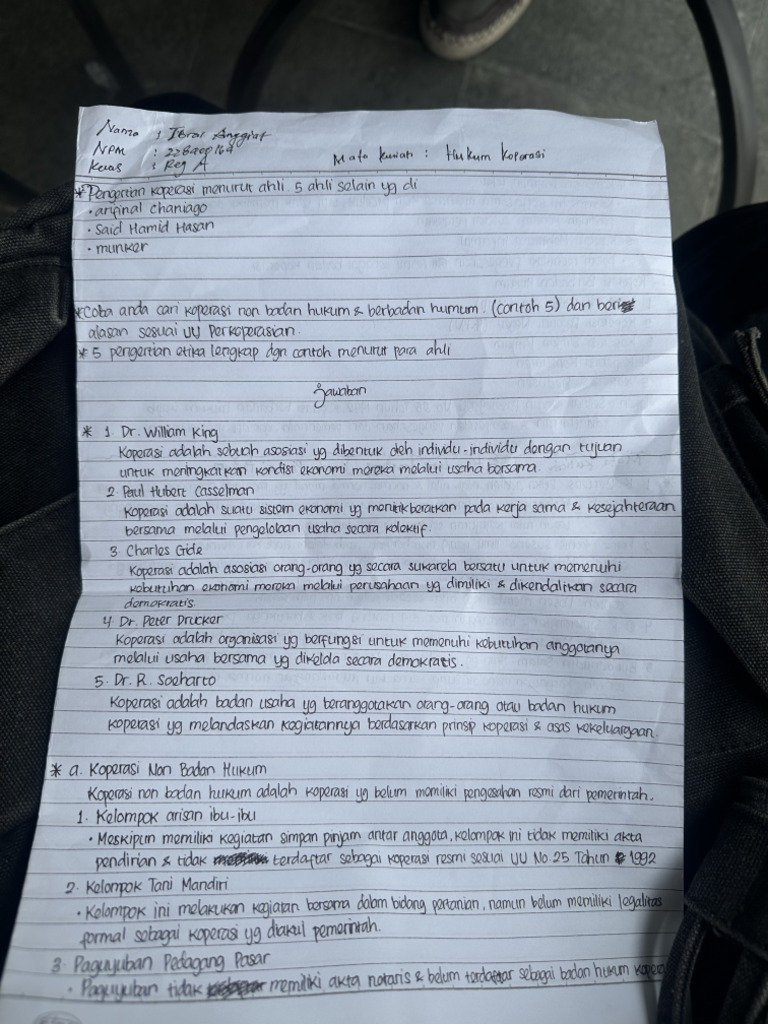 Nama : Ibrai Anggiat
NPM :
Kelas : Reg A
Mata kuliah : Hukum Koperasi
* Pengertian koperasi menurut ahli 5 ahli selain yg di
• arifinal chaniago
• Said Hamid Hasan
• munker
* Coba anda cari koperasi non badan hukum & berbadan humum. (contoh 5) dan beri
alasan sesuai UU Perkoperasian.
* 5 pengertian etika lengkap dgn contoh menurut para ahli
Jawaban
* 1. Dr. William King
Koperasi adalah sebuah asosiasi yg dibentuk oleh individu-individu dengan tujuan
untuk meningkatkan kondisi ekonomi mereka melalui usaha bersama.
2. Paul Hubert Casselman
Koperasi adalah suatu sistem ekonomi yg menitikberatkan pada kerja sama & kesejahteraan
bersama melalui pengelolaan usaha secara kolektif.
3. Charles Gide
Koperasi adalah asosiasi orang-orang yg secara sukarela bersatu untuk memenuhi
kebutuhan ekonomi mereka melalui perusahaan yg dimiliki & dikendalikan secara
demokratis.
4. Dr. Peter Drucker
Koperasi adalah organisasi yg berfungsi untuk memenuhi kebutuhan anggotanya
melalui usaha bersama yg dikelola secara demokratis.
5. Dr. R. Soeharto
Koperasi adalah badan usaha yg beranggotakan orang-orang atau badan hukum
koperasi yg melandaskan kegiatannya berdasarkan prinsip koperasi & asas kekeluargaan.
* a. Koperasi Non Badan Hukum
Koperasi non badan hukum adalah koperasi yg belum memiliki pengesahan resmi dari pemerintah.
1. Kelompok arisan ibu-ibu
• Meskipun memiliki kegiatan simpan pinjam antar anggota, kelompok ini tidak memiliki akta
pendirian & tidak terdaftar sebagai koperasi resmi sesuai UU No.25 Tahun 1992
2. Kelompok Tani Mandiri
• Kelompok ini melakukan kegiatan bersama dalam bidang pertanian, namun belum memiliki legalitas
formal sebagai koperasi yg diakui pemerintah.
3. Paguyuban Pedagang Pasar
• Paguyuban tidak memiliki akta notaris & belum terdaftar sebagai badan hukum